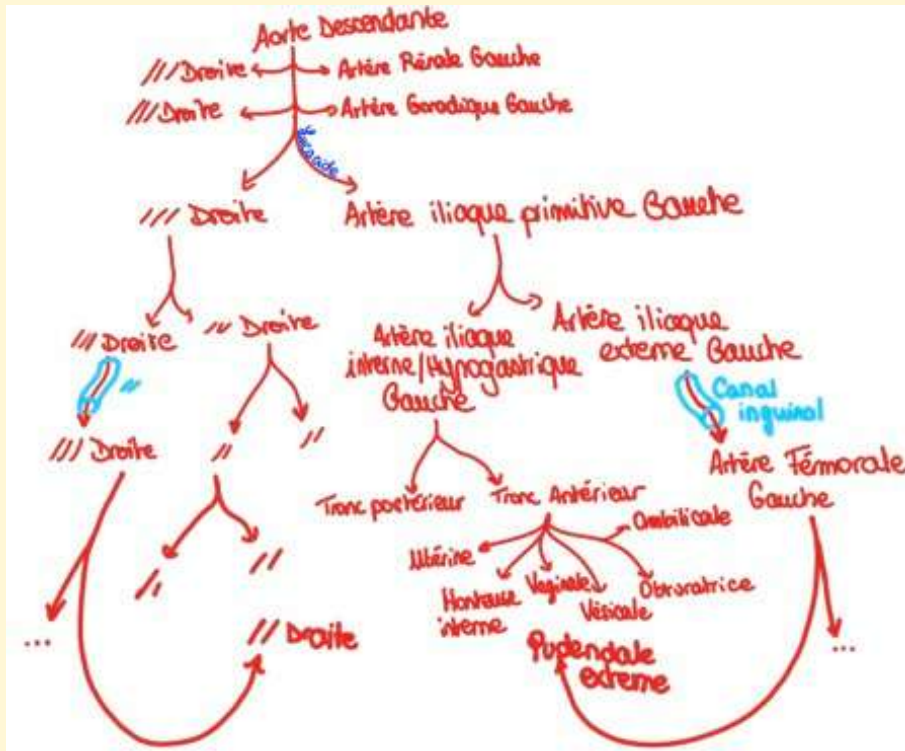 Aorte Descendante
/// Droite Artère Rénale Gauche
/// Droite Artère Gonadique Gauche
/// Droite Artère iliaque primitive Gauche
/// Droite // Droite Artère iliaque Artère iliaque
interne/Hypogastrique externe Gauche
Gauche
// Canal
inguinal
/// Droite // // Artère Fémorale
Gauche
Tronc postérieur Tronc Antérieur
Ombilicale
Utérine
// // Honteuse Vaginale Vésicale Obturatrice
interne
// Droite Pudendale
externe
... ...